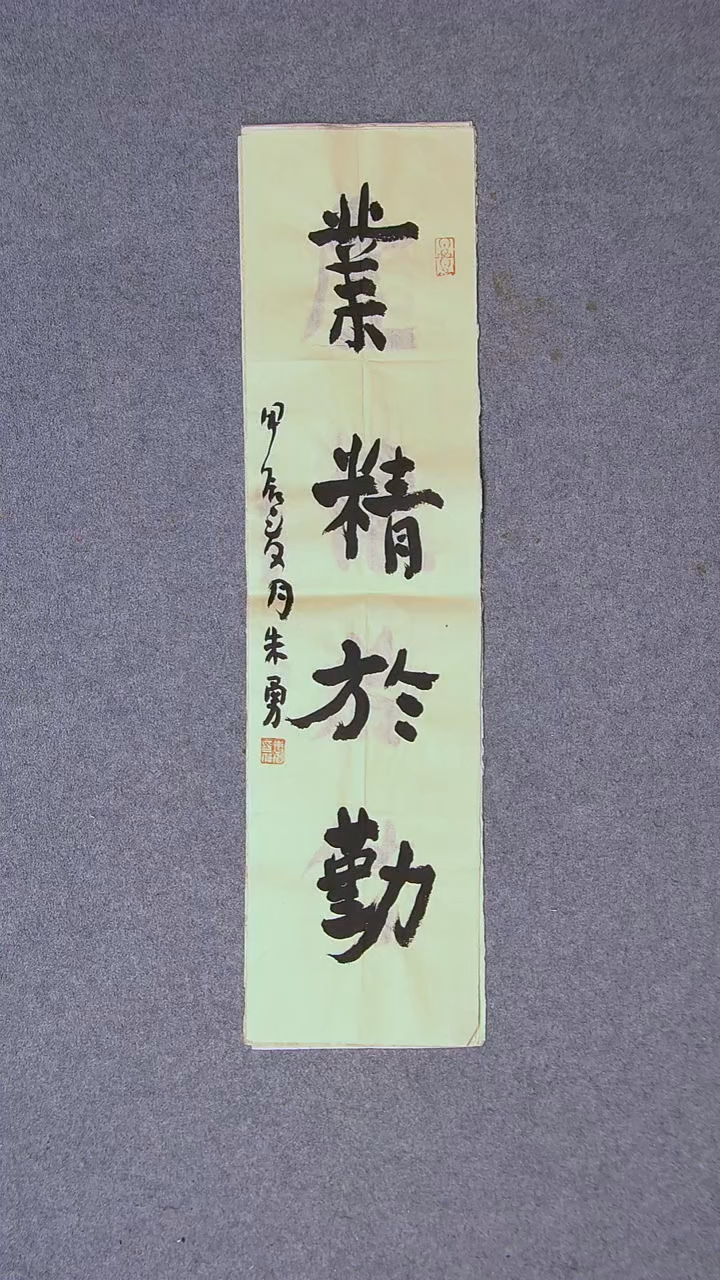 業精於勤
甲辰夏月朱勇